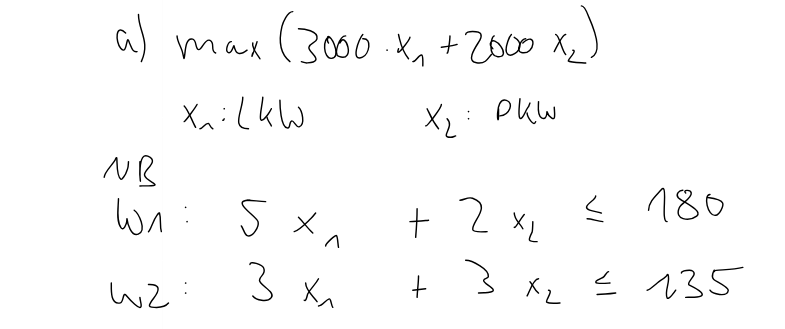 a) max (3000 · x₁ + 2000 x₂)
x₁: LKW x₂: PKW
NB
W1: 5 x₁ + 2 x₂ ≤ 180
W2: 3 x₁ + 3 x₂ ≤ 135